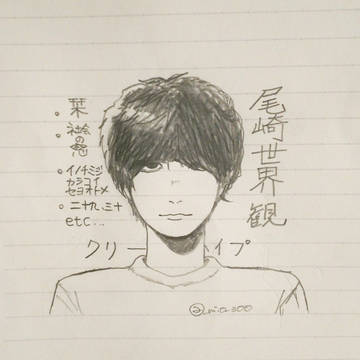 尾崎世界観
・栞
・社会の窓
・イノチミジ
カシコイ
セヨオトメ
・二十九、三十
etc...
クリープ